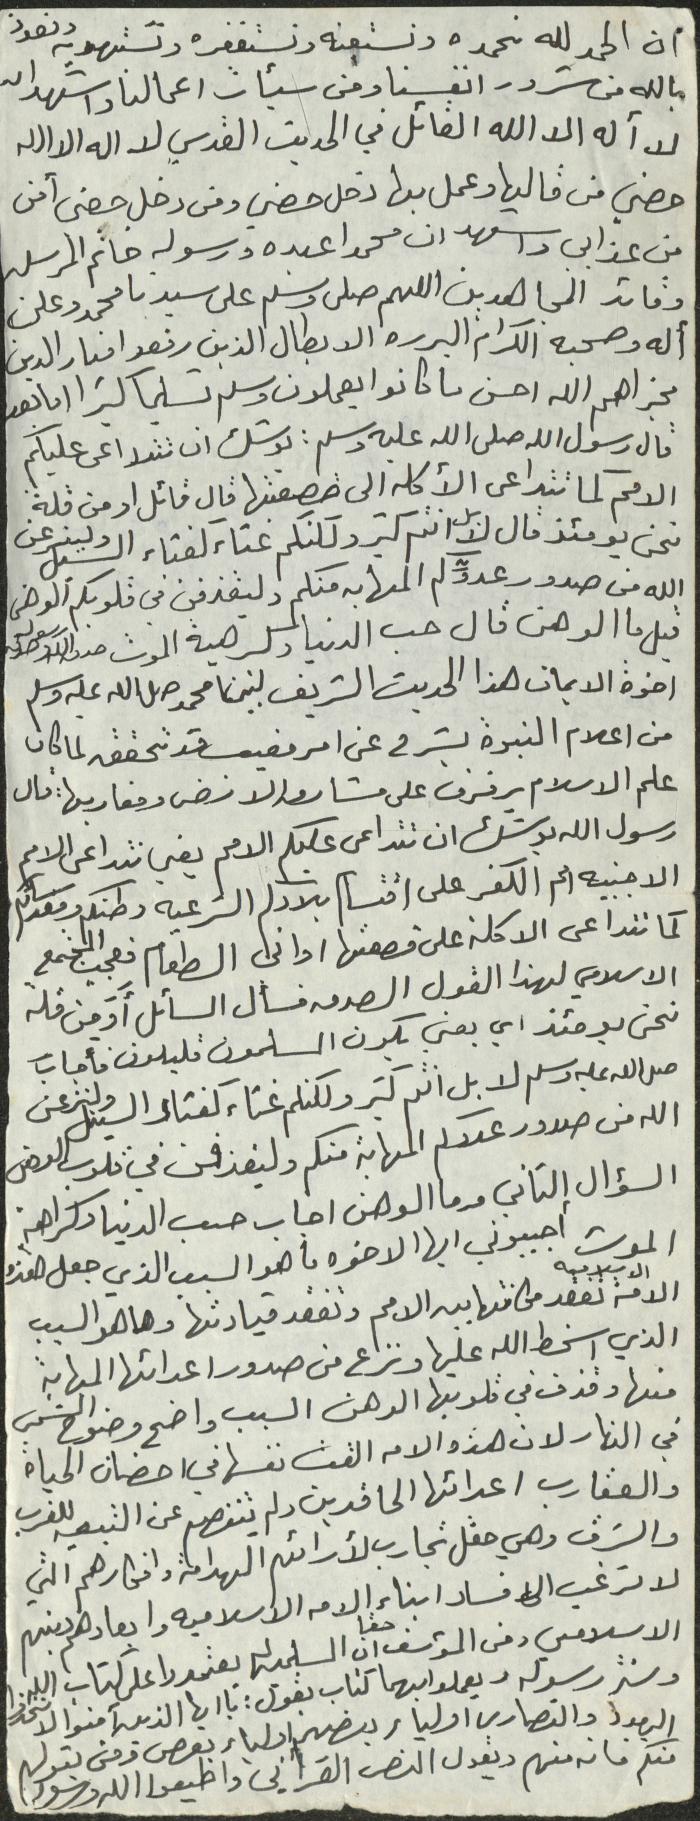 ان الحمد لله نحمده ونستعينه ونستغفره ونستهديه ونعوذ
بالله من شرور انفسنا ومن سيئات اعمالنا واشهد ان
لا أله الا الله القائل في الحديث القدسي لا اله الا الله
حصني من قالها وعمل بها دخل حصني ومن دخل حصني أمن
من عذابي واشهد ان محمدا عبده ورسوله خاتم المرسلين
وقائد المجاهدين اللهم صلى وسلم على سيدنا محمد وعلى
أله وصحبه الكرام البرره الابطال الذين رفعوا منار الدين
فجزاهم الله احسن ما كانوا يعملون وسلم تسليما كثيرا اما بعد
قال رسول الله صلى الله عليه وسلم : يوشك ان تتداعى عليكم
الامم كما تتداعى الأكله الى قصعتها قال قائل او من قلة
نحن يومئذ قال لا بل انتم كثير ولكنكم غثاء كغثاء السيل ولينزعن
الله من صدور عدوكم المهابه منكم وليقذفن في قلوبكم الوهن
قيل ما الوهن قال حب الدنيا وكراهية الموت صدق رسول الله
اخوة الايمان هذا الحديث الشريف لنبينا محمد صلى الله عليه وسلم
من اعلام النبوة يشرح عن امر مغيب قد تحققه لما كان
علم الاسلام يرفرف على مشارق الارض ومغاربها : قال
رسول الله يوشك ان تتداعى عليكم الامم يعني تتداعى الامم
الاجنبيه امم الكفر على اقتسام بلادكم الشرعيه وطنكم ومقدراتكم
كما تتداعى الاكلة على قصعتها اواني الطعام فعجب المجتمع
الاسلامي لهذا القول الصدمه فسأل السائل أو من قلة
نحن يومئذ اي يعني يكون المسلمون قليلون فأجاب
صلى الله عليه وسلم لا بل انتم كثير ولكنكم غثاء كغثاء السيل ولينزعن
الله من صدور عدوكم المهابة منكم وليقذفن في قلوبكم الوهن
السؤال الثاني وما الوهن اجاب حب الدنيا وكراهية
الموت أجيبوني ايها الاخوه ما هو السبب الذي جعل هذه
الامة الاسلاميه تفقد مكانتها بين الامم وتفقد قيادتها وما هو السبب
الذي اسخط الله عليها ونزع من صدور اعدائها المهابة
منها وقذف في قلوبها الوهن السبب واضح وضوح الشمس
في النهار لان هذه الامه القت نفسها في احضان الحياة
والعقارب اعدائها الحاقدين ولم تنفصم عن التبعيه للغرب
والشرق وهي حقل تجارب لأرائهم الهدامة وافكارهم التي
لا ترغب الا فساد ابناء الامه الاسلاميه وابعادهم دينهم
الاسلامي ومن المؤسف حقا ان المسلمين لم يعتمدوا على كتاب الله
وسنة رسوله ويعملوا بهما كتاب يقول : يا ايها الذين آمنوا لا تتخذوا
اليهود والنصارى اولياء بعضهم اولياء بعض ومن يتولهم
منكم فانه منهم ويقول النص القرآني واطيعوا الله ورسوله